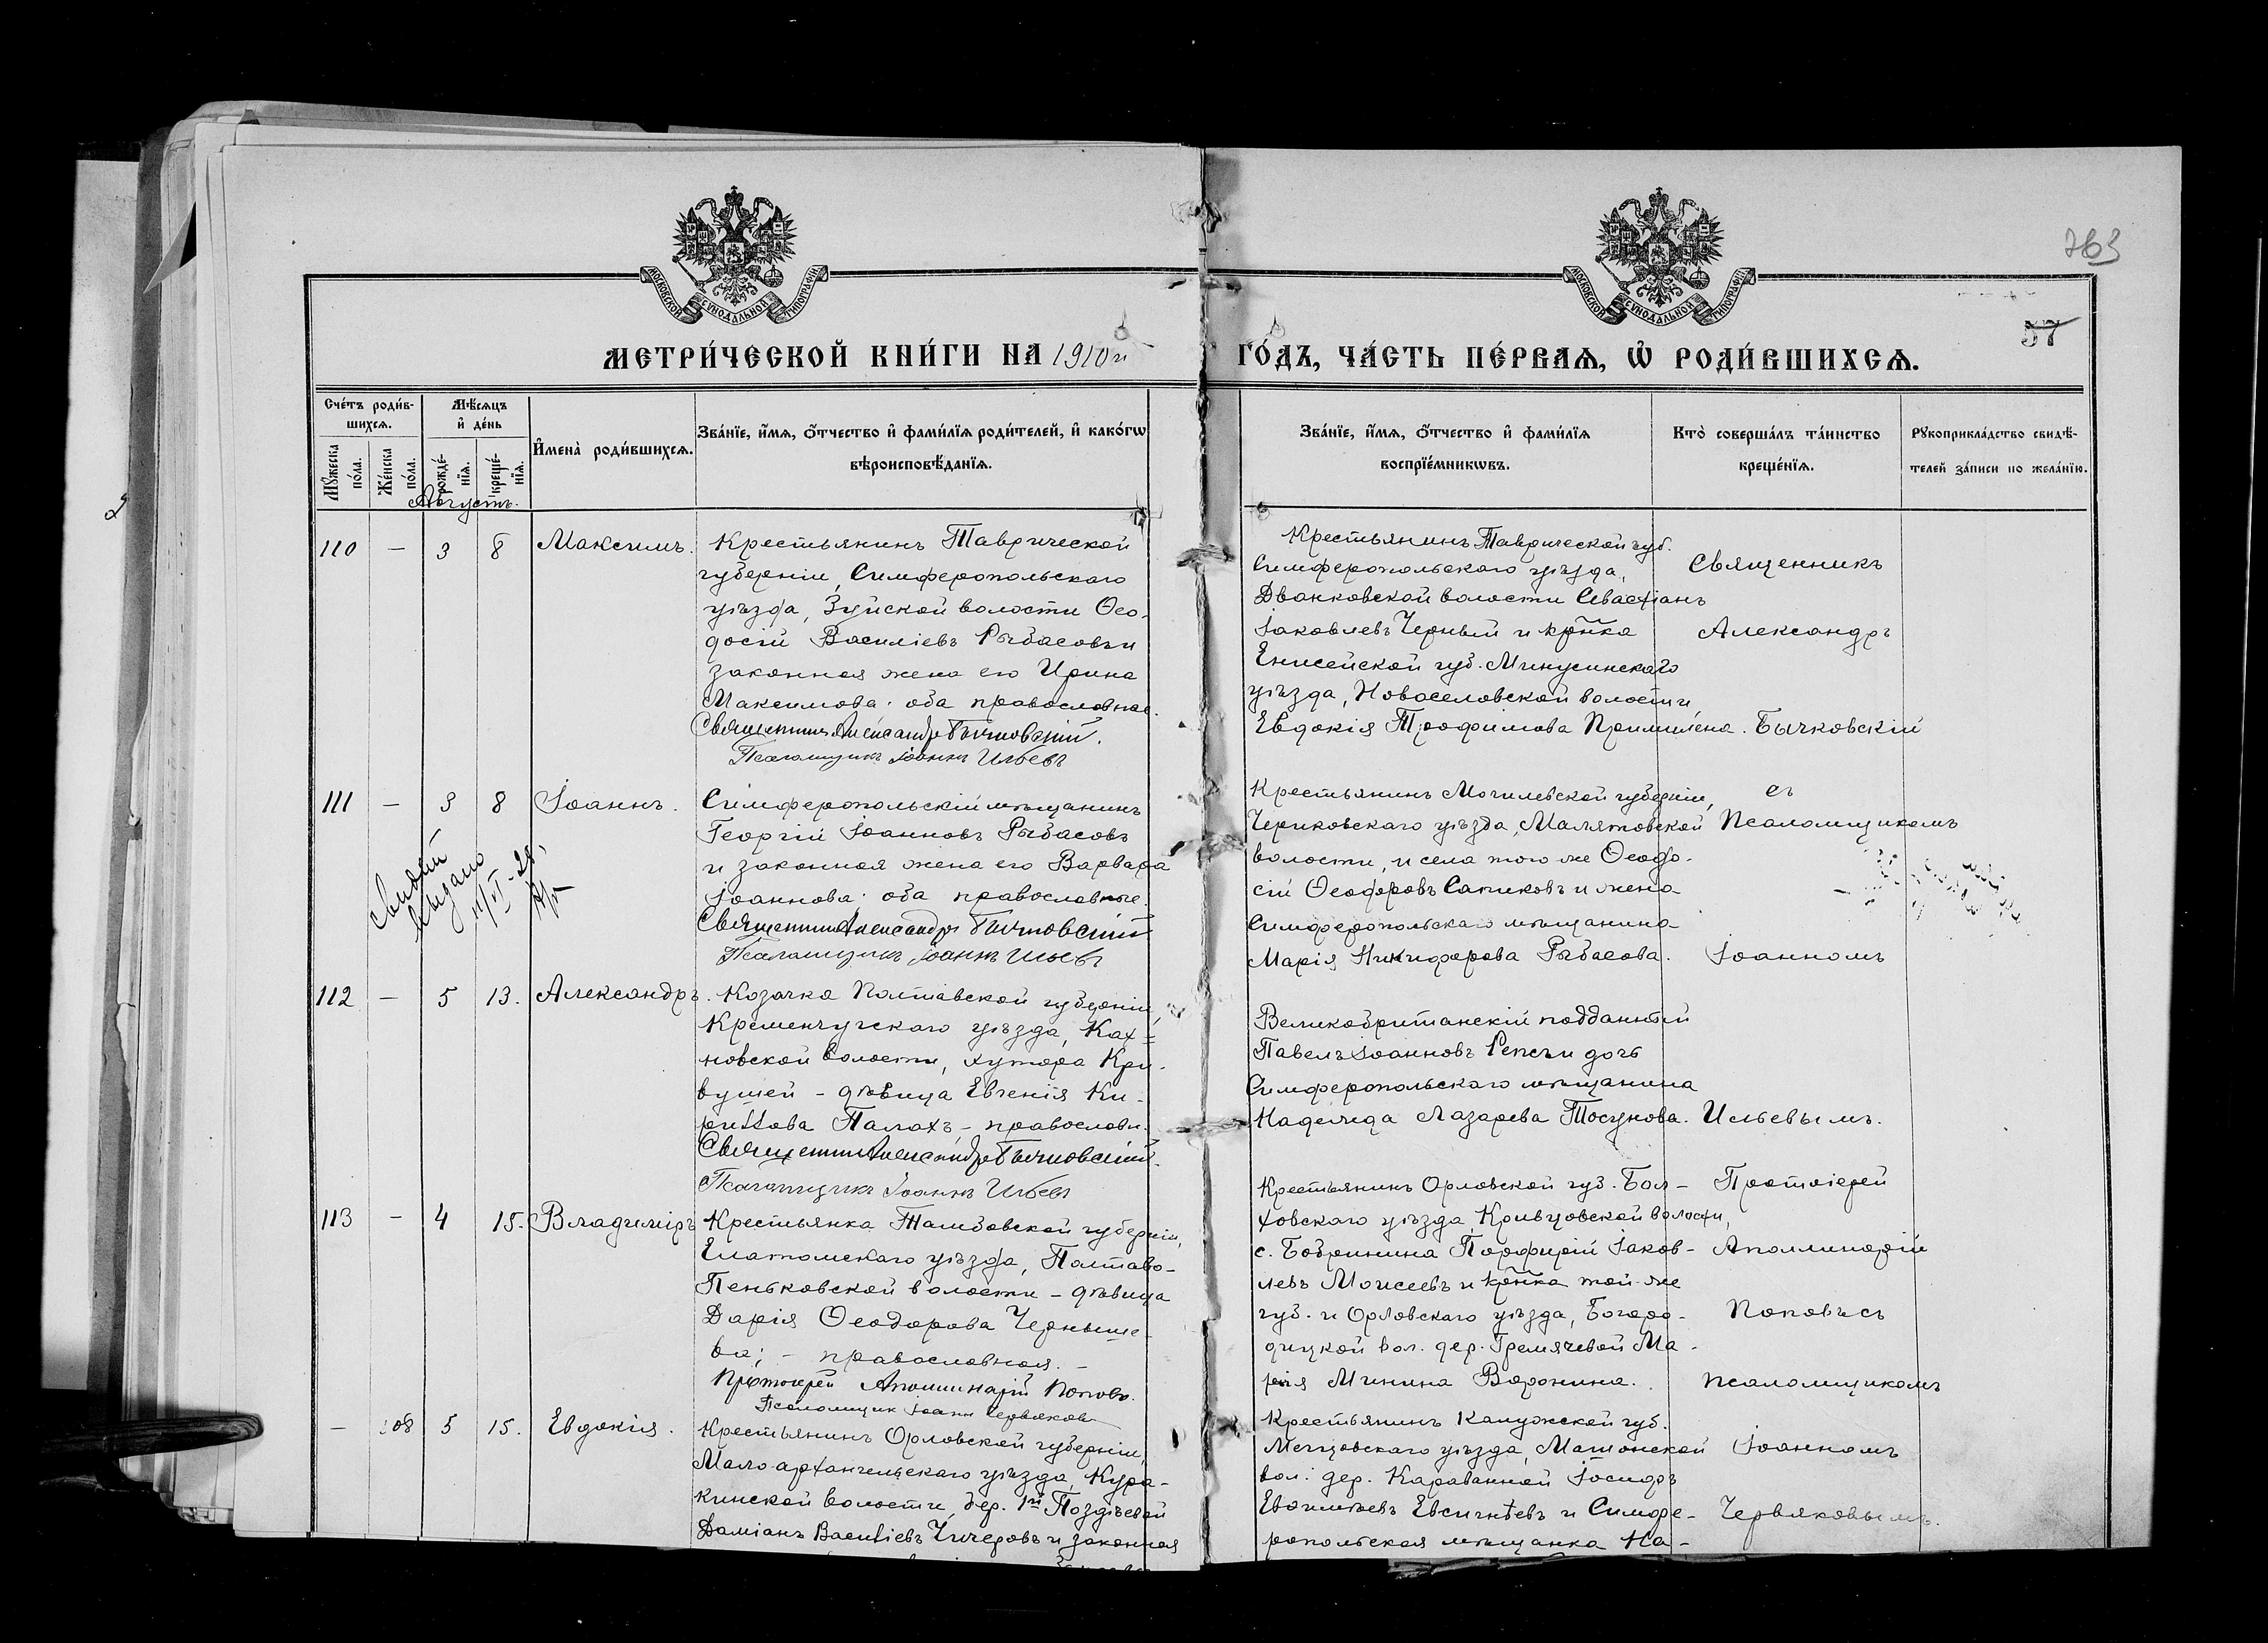 763
57
МОСКОВСКОЙ СѴНОДАЛЬНОЙ ТИПОГРАФІИ
МОСКОВСКОЙ СѴНОДАЛЬНОЙ ТИПОГРАФІИ
МЕТРИ́ЧЕСКОЙ КНИ́ГИ НА 1910й
ГО́ДЪ, ЧА́СТЬ ПЕ́РВАЯ, Ѡ҆ РОДИ́ВШИХСЯ.
Сче́тъ роди́в-
шихся.
Мѣ́сяцъ
и҆ де́нь
Мꙋ́жеска
по́ла.
Же́нска
по́ла.
рожде́-
нїя.
креще́-
нїя.
И҆мена̀ роди́вшихся.
Зва́нїе, и҆́мя, о҆́тчество и҆ фами́лїя роди́телей, и҆ како́гѡ
вѣроисповѣ́данїя.
Зва́нїе, и҆́мя, о҆́тчество и҆ фами́лїя
воспрїе́мникѡвъ.
Кто̀ соверша́лъ та́инство
креще́нїя.
Рꙋкоприкла́дство свидѣ́-
телей за́писи по жела́нїю.
Августъ.
110 — 3 8 Максимъ.
Крестьянинъ Таврической
губерніи, Симферопольскаго
уѣзда, Зуйской волости Ѳео-
досій Василіевъ Рыбасовъ и
законная жена его Ирина
Максимова; оба православные.
Священникъ Александръ Бычковскій.
Псаломщикъ Іоаннъ Ильевъ
Крестьянинъ Таврической губ.
Симферопольскаго уѣзда,
Джанковской волости Севастіанъ
Іаковлевъ Черный и кр̃нка
Енисейской губ. Минусинскаго
уѣзда, Новоселовской волости,
Евдокія Трофимова
Священникъ
Александръ
Бычковскій
111 — 3 8 Іоаннъ.
Симферопольскій мѣщанинъ
Георгій Іоанновъ Рыбасовъ
и законная жена его Варвара
Іоаннова; оба православные.
Священникъ Александръ Бычковскій
Псаломщикъ Іоаннъ Ильевъ
Крестьянинъ Могилевской губерніи,
Чериковскаго уѣзда, Малятовской
волости, и села того же Ѳеодо-
сій Ѳеодоровъ Сапиковъ и жена
Симферопольскаго мѣщанина
Марія Никифорова Рыбасова.
съ
Псаломщикомъ
Іоанномъ
112 — 5 13. Александръ.
Козачка Полтавской губерніи,
Кременчугскаго уѣзда, Ках-
новской волости, хутора Кри-
вушей – дѣвица Евгенія Ки-
риллова Палахъ, – православн.
Священникъ Александръ Бычковскій.
Псаломщикъ Іоаннъ Ильевъ
Великобританскій подданный
Павелъ Іоанновъ Репсъ и дочь
Симферопольскаго мѣщанина
Надежда Лазарева Тосунова.
Ильевымъ.
113 — 4 15. Владиміръ
Крестьянка Тамбовской губерніи,
Елатомскаго уѣзда, Полтаво-
Пеньковской волости – дѣвица
Дарія Ѳеодорова Черныше-
ва; – православная. –
Протоіерей Аполлинарій Поповъ.
Псаломщик Іоанн Червяковъ
Крестьянинъ Орловской губ. Бол-
ховскаго уѣзда, Кривцовской волости,
с. Бобринина Порфирій Іаков-
левъ Моисеевъ и кр̃нка той-же
губ. и Орловскаго уѣзда, Богоро-
дицкой вол. дер. Гремячевой Ма-
рія Минина Воронина.
Протоіерей
Аполлинарій
Поповъ съ
псаломщикомъ
— 108 5 15. Евдокія.
Крестьянинъ Орловской губерніи,
Мало-архангельскаго уѣзда, Кура-
кинской волости, дер. 1й Поздѣевой
Даміанъ Василіевъ Чичеровъ и законная
Крестьянинъ Калужской губ.
Мещовскаго уѣзда, Машонской
вол. дер. Караванной Іосифъ
Евсигнѣевъ и Симфе-
ропольская мѣщанка На-
Іоанномъ
Червяковымъ.